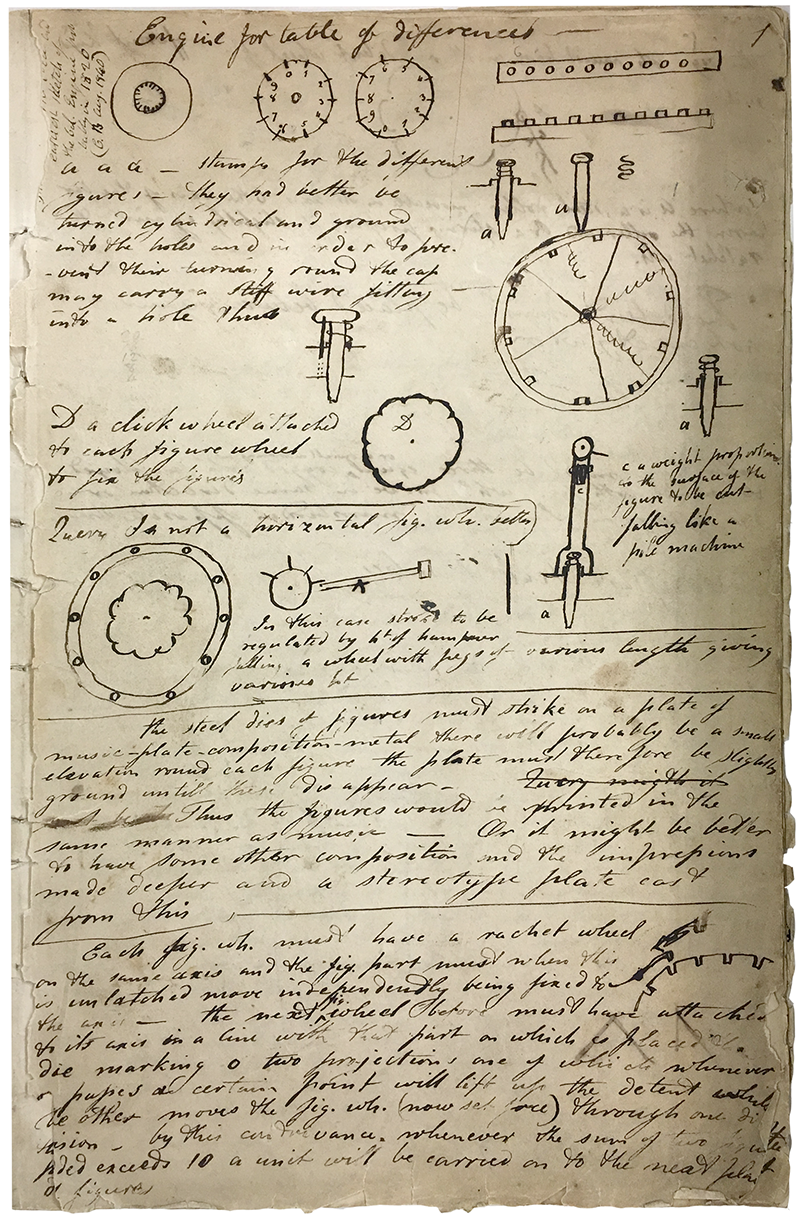 Engine for table of differences —
1
1820
a a a — stamps for the different
figures — they had better be
turned cylindrical and ground
into the holes and in order to pre-
-vent their turning round the cap
may carry a stiff wire fitting —
into a hole thus
a
a
a
D a click wheel attached
to each figure wheel
to fix the figures
D
c a weight proportion
to the surface of the
figure to be cut
falling like a
pile machine
c
a
Query Is not a horizontal fig. wh. better
In this case stroke to be
regulated by ht of hammer
falling a wheel with pegs of various length giving
various ht
the steel dies of figures must strike on a plate of
music-plate-composition-metal there will probably be a small
elevation round each figure the plate must therefore be slightly
ground untill these disappear — Query might it
Thus the figures would be printed in the
same manner as music — Or it might be better
to have some other composition and the impressions
made deeper and a stereotype plate cast
from this
Each fig. wh. must have a rachet wheel
on the same axis and the fig. part must when this
is unlatched move independently being fixed to
the axis — the next fig. wheel before must have attached
to its axis in a line with that part on which is placed the
die marking 0 two projections one of which whenever
o passes a certain point will lift up the detent while
the other moves the fig. wh. (now set free) through one di
vision — by this contrivance whenever the sum of two figures
added exceeds 10 a unit will be carried on to the next place
of figures